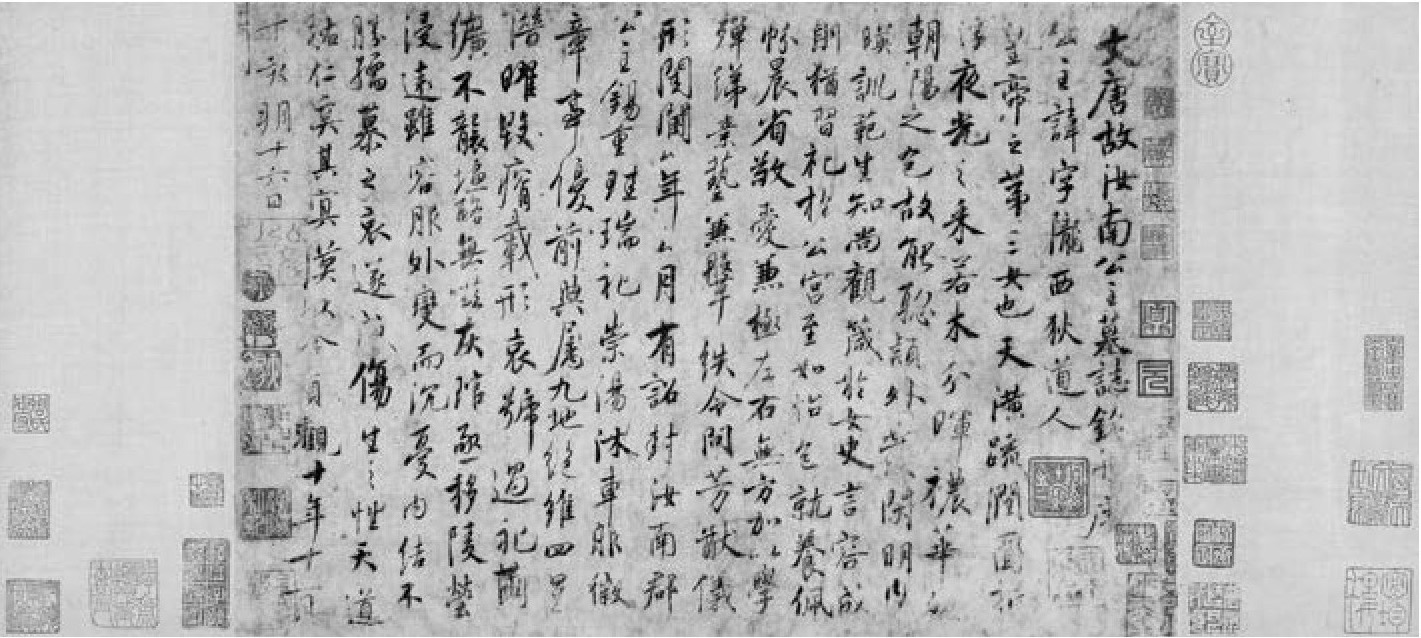 大唐故汝南公主墓誌銘并序
公主諱字隴西狄道人
皇帝之第三女也天潢疏潤圓折
浮夜光之采若木分暉穠華
朝陽之色故能聰穎外
閑明內
暎訓範生知尚觀箴於女史言容成
則猶習禮於公宮至如怡色就養佩
帉晨省敬愛兼極左右無方加以學
殫綈素藝兼鞶紩令問芳猷儀
形閨閫年月有詔封汝南郡
公主錫重珪瑞禮崇湯沐車服徽
章事優前典屬九地絕維四星
潛曜毀瘠載形哀號過禮繭
纊不襲塩酪無滋灰琯亟移陵塋
浸遠雖容服外變而沉憂內結不
勝孺慕之哀遂
傷生之性天道
祐仁奚其冥漠以今貞觀十年十
十
朔十六日